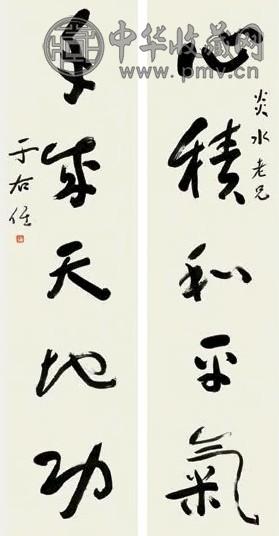 中华收藏网
www.pmv.cn
炎水老兄
心積和平氣
手成天地功
于右任